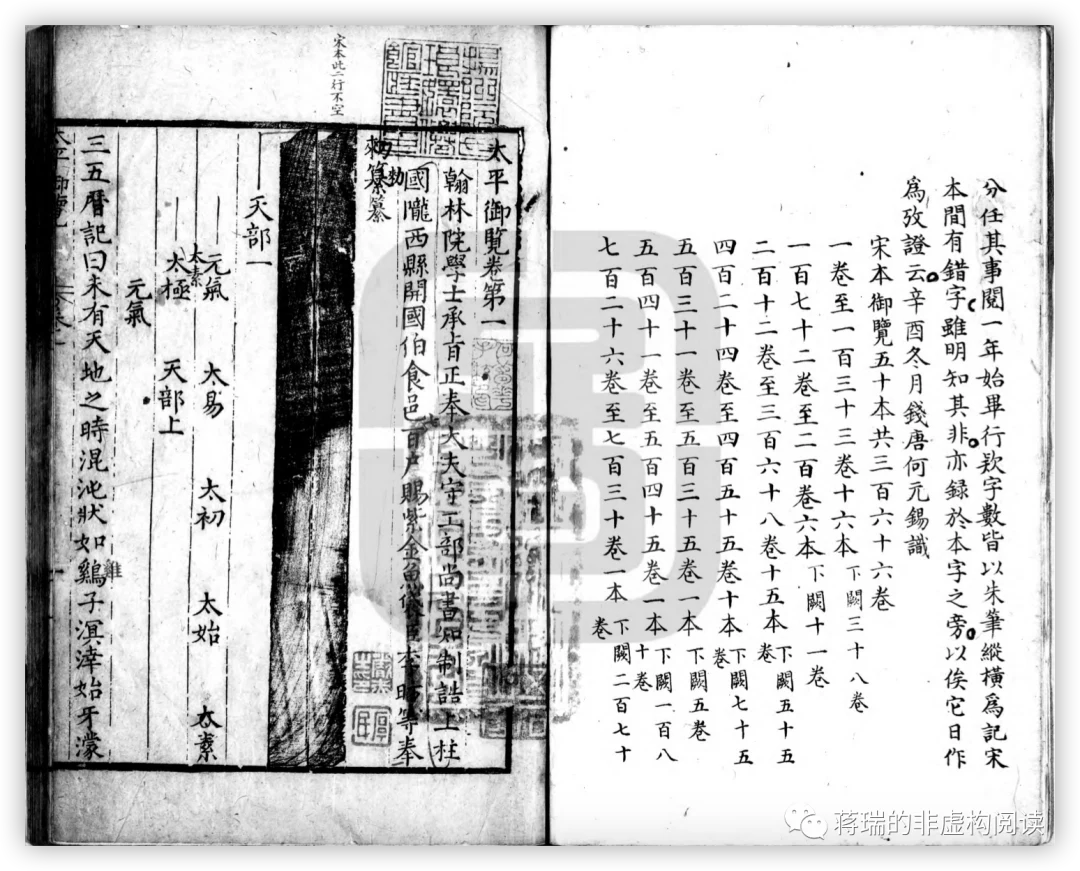 分任其事閱一年始畢行款字數皆以朱筆縱橫爲記宋
本間有錯字雖明知其非亦録於本字之旁以俟它日作
爲攷證云辛酉冬月錢唐何元錫識
宋本御覽五十本共三百六十六卷
一卷至一百三十三卷十六本 下闕三十八卷
一百七十二卷至二百卷六本 下闕十一卷
二百十二卷至三百六十八卷十五本 下闕五十五卷
四百二十四卷至四百五十五卷十本 下闕七十五卷
五百三十一卷至五百三十五卷一本 下闕五卷
五百四十一卷至五百四十五卷一本 下闕一百八十卷
七百二十六卷至七百三十卷一本 下闕二百七十卷
宋本此二行不空
太平御覽卷第一
翰林院學士承旨正奉大夫守工部尚書知制誥上柱
國隴西縣開國伯食邑百戶賜紫金魚袋臣李昉等奉
勅纂
敕纂
天部一
元氣 太易 太初 太始 太素
太素
太極 天部上
元氣
三五曆記曰未有天地之時混沌狀如鷄子溟涬始牙濛
雞
太平御覽
蒋瑞的非虚构阅读